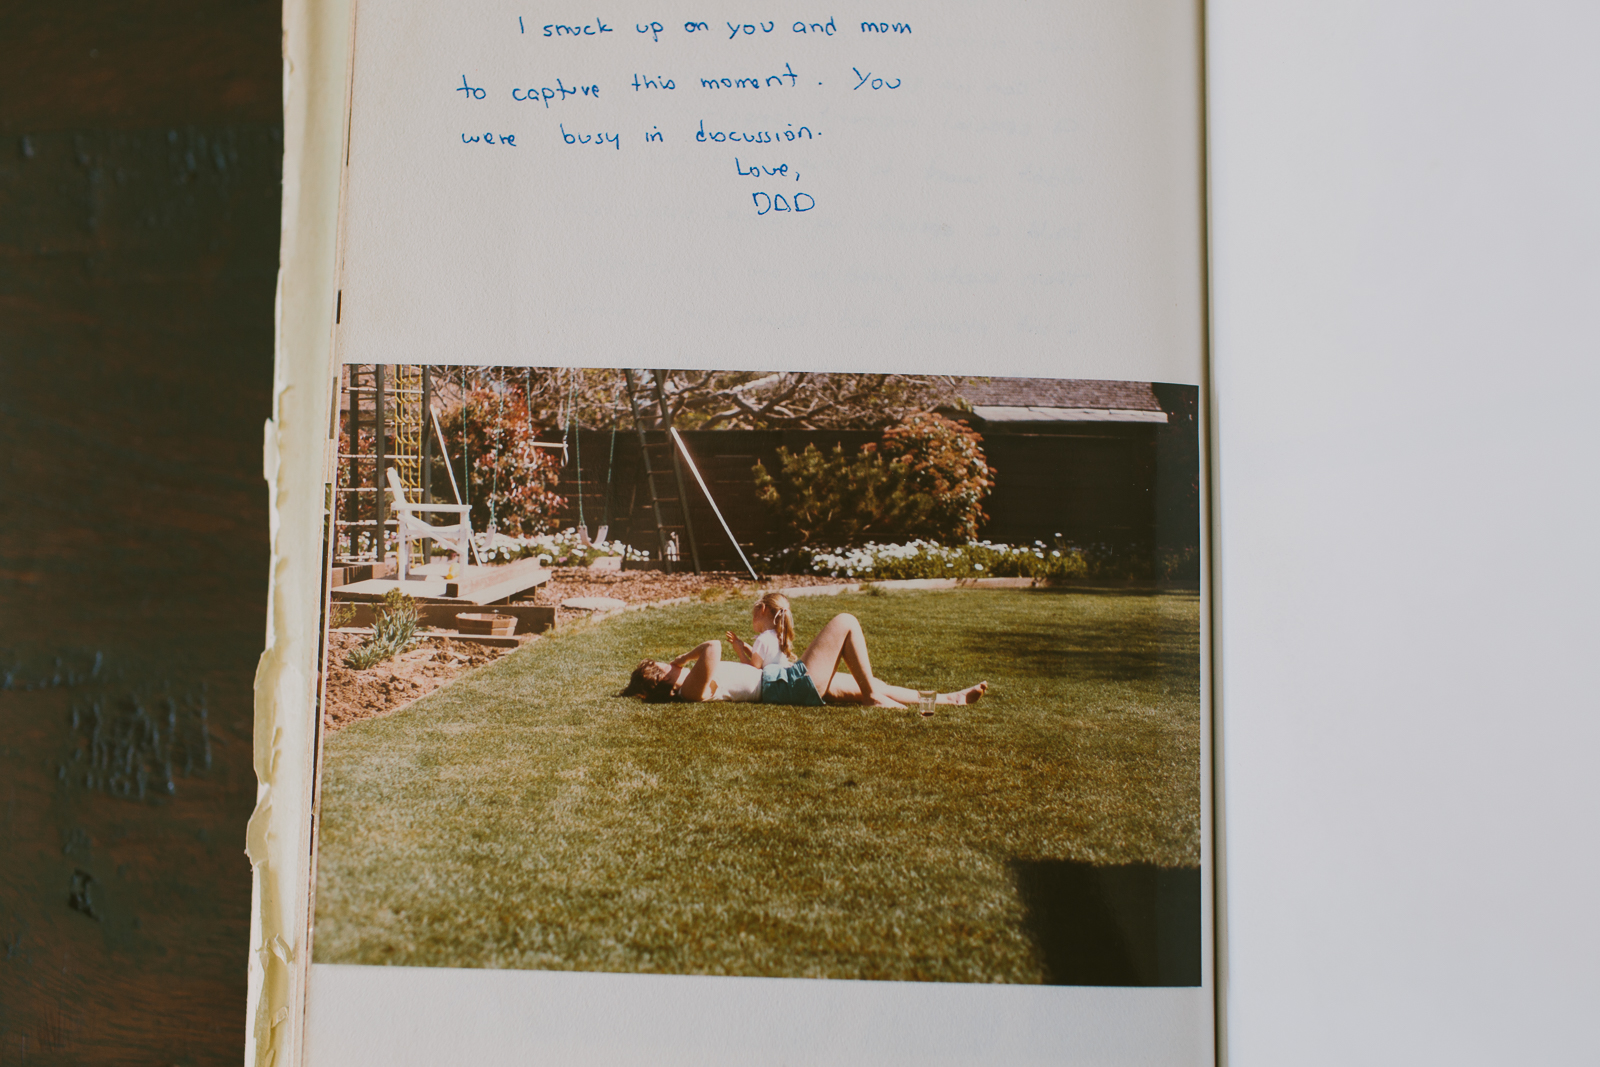 I snuck up on you and mom
to capture this moment. You
were busy in discussion.
Love,
DAD